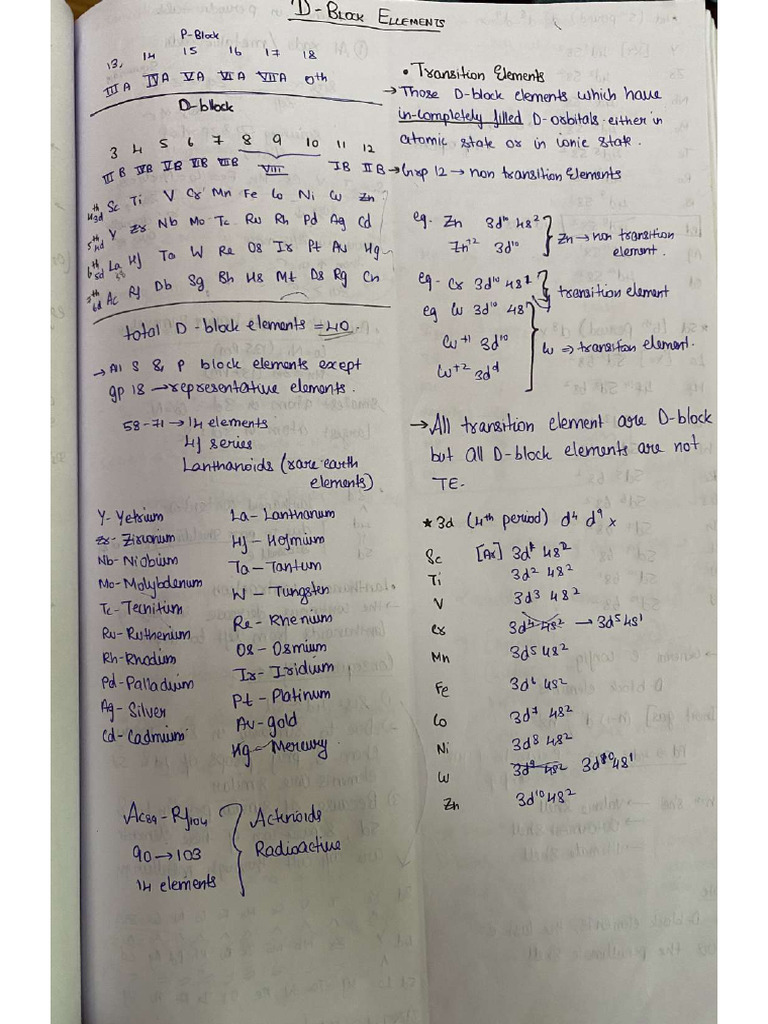 D-BLOCK ELLEMENTS
P-Block
13, 14 15 16 17 18
III A IV A V A VI A VII A 0th
D-block
3 4 5 6 7 8 9 10 11 12
III B IV B V B VI B VII B VIII I B II B
4th 3d Sc Ti V Cr Mn Fe Co Ni Cu Zn
5th 4d Y Zr Nb Mo Tc Ru Rh Pd Ag Cd
6th 5d La Hf Ta W Re Os Ir Pt Au Hg
7th 6d Ac Rf Db Sg Bh Hs Mt Ds Rg Cn
total D-block elements = 40.
→ All S & P block elements except
gp 18 → representative elements.
58-71 → 14 elements
4f series
Lanthanoids (rare earth
elements)
Y- Yetrium
Zr- Zirconium
Nb- Niobium
Mo- Molybdenum
Tc- Tecnitium
Ru- Ruthenium
Rh- Rhodium
Pd- Palladuim
Ag- Silver
Cd- Cadmium
La- Lanthanum
Hf- Hofmium
Ta- Tantum
W- Tungsten
Re- Rhenium
Os- Osmium
Ir- Iridium
Pt- Platinum
Au- gold
Hg- Mercury
Ac89 - Rf104
90 → 103
14 elements
Actinoids
Radioactive
• Transition Elements
→ Those D-block elements which have
in-completely filled D-orbitals either in
atomic state or in ionic state.
→ Grp 12 → non transition Elements
eg. Zn 3d10 4s2
Zn+2 3d10
Zn → non transition
element.
eg- Cr 3d10 4s2
transition element
eg Cu 3d10 4s1
Cu+1 3d10
Cu+2 3d9
Cu ⇒ transition element.
→ All transition element are D-block
but all D-block elements are not
TE.
* 3d (4th period) d4 d9 x
Sc [Ar] 3d1 4s2
Ti 3d2 4s2
V 3d3 4s2
Cr 3d4 4s2 → 3d5 4s1
Mn 3d5 4s2
Fe 3d6 4s2
Co 3d7 4s2
Ni 3d8 4s2
Cu 3d9 4s2 3d10 4s1
Zn 3d10 4s2